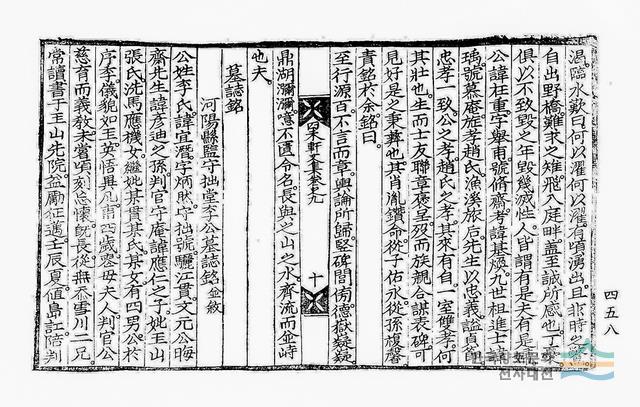 渴臨水歎曰何以濯何以濯有頃湧出且非時之
自出野橋難求之雉飛入庭畔蓋至誠所感也丁
俱以不致毀之年毀幾滅性人皆謂有是夫有是
公諱柱重字舜甫號脩齋考諱基煥九世祖進士
瑀號慕庵旌孝趙氏漁溪旅后先生以忠義謚貞
忠孝一致公之孝趙氏之孝其來有自一室雙孝何
其壯也生而士友聯章褒呈歿而族親合謀表碑可
見好是之秉彛也其肖胤鑽命從子佑永從孫馥馨
責銘於余銘曰
至行源百不言而章輿論所歸堅碑閭傍德嶽嶷嶷
鼎湖瀰瀰噫不匱令名長與之山之水齊流而並峙
也夫
墓誌銘
河陽縣監守拙堂李公墓誌銘 並敘
公姓李氏諱宜潛字炳然守拙號驪江貫文元公晦
齋先生諱彦迪之孫判官守庵諱應仁之子妣玉山
張氏沈馬應機女繼妣某貫某氏某女有四男公於
序季儀貌如玉英悟異凡甫四歲喪母夫人判官公
慈育而義敎未嘗頃刻忘懷旣長從無忝雪川二兄
常讀書于玉山先院益勵征邁壬辰夏値島訌陪判
文集卷之九
十
四五八